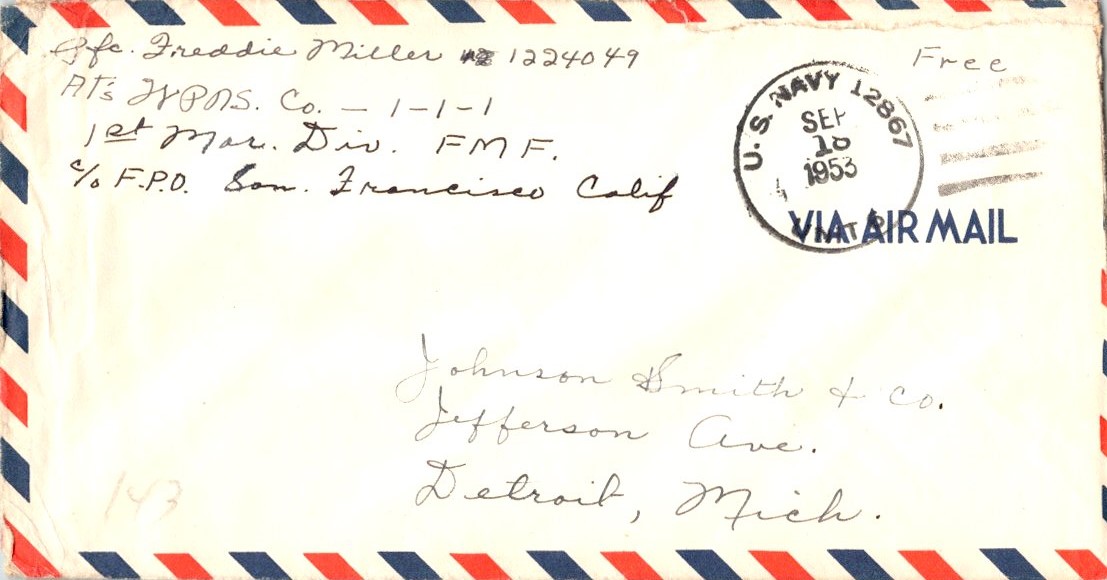 Pfc. Freddie Miller 1224049
AT's WPNS. Co. – 1-1-1
1st Mar. Div. FMF.
c/o F.P.O. San. Francisco Calif
Free
U.S. NAVY 12867
SEP
18
1953
VIA AIR MAIL
Johnson Smith & Co.
Jefferson Ave.
Detroit, Mich.
143